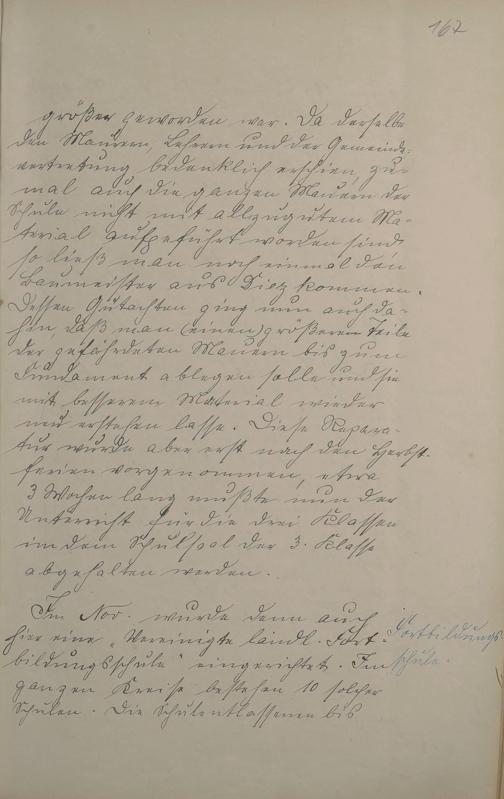 167
größer geworden war. Da derselbe
den Maurern, Lehrern und der Gemeinde-
vertretung bedenklich erschien, zu-
mal auch die ganzen Mauern der
Schule nicht mit allzugutem Ma-
terial aufgeführt worden sind,
so ließ man noch einmal den
Baumeister aus Diez kommen.
Dessen Gutachten ging nun auch da-
hin, daß man (einen) größeren Teile
der gefährdeten Mauern bis zum
Fundament ablegen solle und sie
mit besserem Material wieder
neu erstehen lasse. Diese Repara-
tur wurde aber erst nach den Herbst-
ferien vorgenommen, etwa
3 Wochen lang mußte nun der
Unterricht für die drei Klassen
in dem Schulsaal der 3. Klasse
abgehalten werden.
Im Nov. wurde denn auch
hier eine „Vereinigte ländl. Fort-
bildungsschule" eingerichtet. Im
ganzen Kreise bestehen 10 solcher
Schulen. Die Schulentlassenen bis
Fortbildungs
schule.